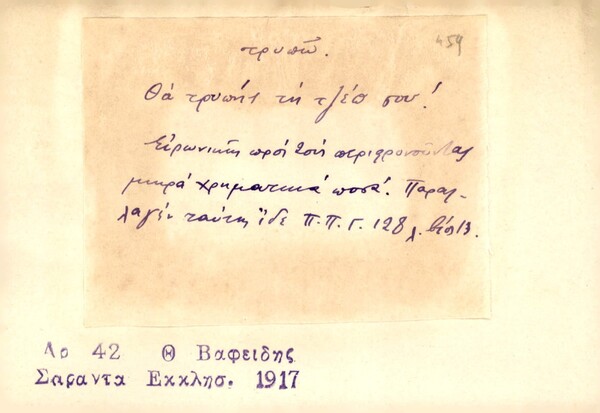 τρυπῶ.
459
Θὰ τρυπήσ τὴ τζέσ σου!
Εἰρωνικῶς πρὸς τοὺς περιφρονοῦντας
μικρὰ χρηματικὰ ποσά. Παραλ-
λαγὴν ταύτης ἴδε Π.Π.Γ. 128 λ.
Λο 42 Θ Βαφειδης
Σαραντα Εκκλησ. 1917